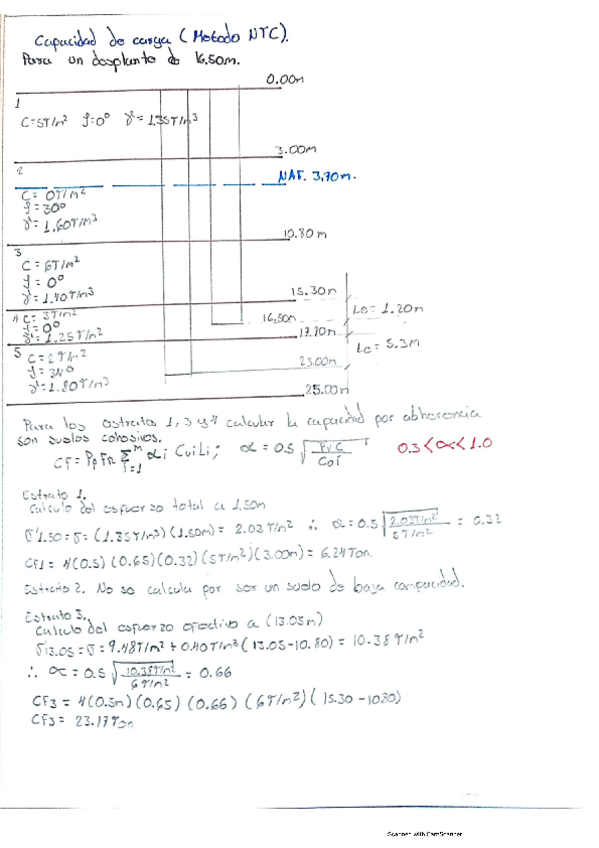 Capacidad de carga (Metodo NTC).
Para un desplante de 16.50m.
0.00m
1
C=5T/m² φ=0° γ=1.35T/m³
3.00m
2
NAF. 3.70m.
C= 0T/m²
φ=30°
γ=1.60T/m³
10.80 m
3
C= 6T/m²
φ= 0°
γ=1.40T/m³
15.30m
4 C= 3T/m²
φ=0°
γ=1.25T/m²
16.50m
Le= 1.20m
5
C= T/m²
φ= °
γ=1.80T/m³
Le= 5.3m
23.00m
25.00m
Para los estratos 1, 3 y 4 calcular la capacidad por adherencia
son suelos cohesivos.
CF= Pp FR Σ αi Cui Li; α= 0.5 √ 0.3<α<1.0
Estrato 1.
Calculo del esfuerzo total a 1.50m
σ'1.50=σ= (1.35T/m³)(1.50m)= 2.03T/m² ∴ α=0.5√2.03T/m²/5T/m² = 0.32
CF1= 4(0.5)(0.65)(0.32)(5T/m²)(3.00m)= 6.24Ton
Estrato 2. No se calcula por ser un suelo de baja compacidad.
Estrato 3.
Calculo del esfuerzo efectivo a (13.05m)
σ'13.05=σ= 9.48T/m²+0.40T/m³(13.05-10.80)= 10.38T/m²
∴ α=0.5√10.38T/m²/6T/m² = 0.66
CF3= 4(0.5m)(0.65)(0.66)(6T/m²)(15.30-10.80)
CF3= 23.17Ton
Scanned with CamScanner